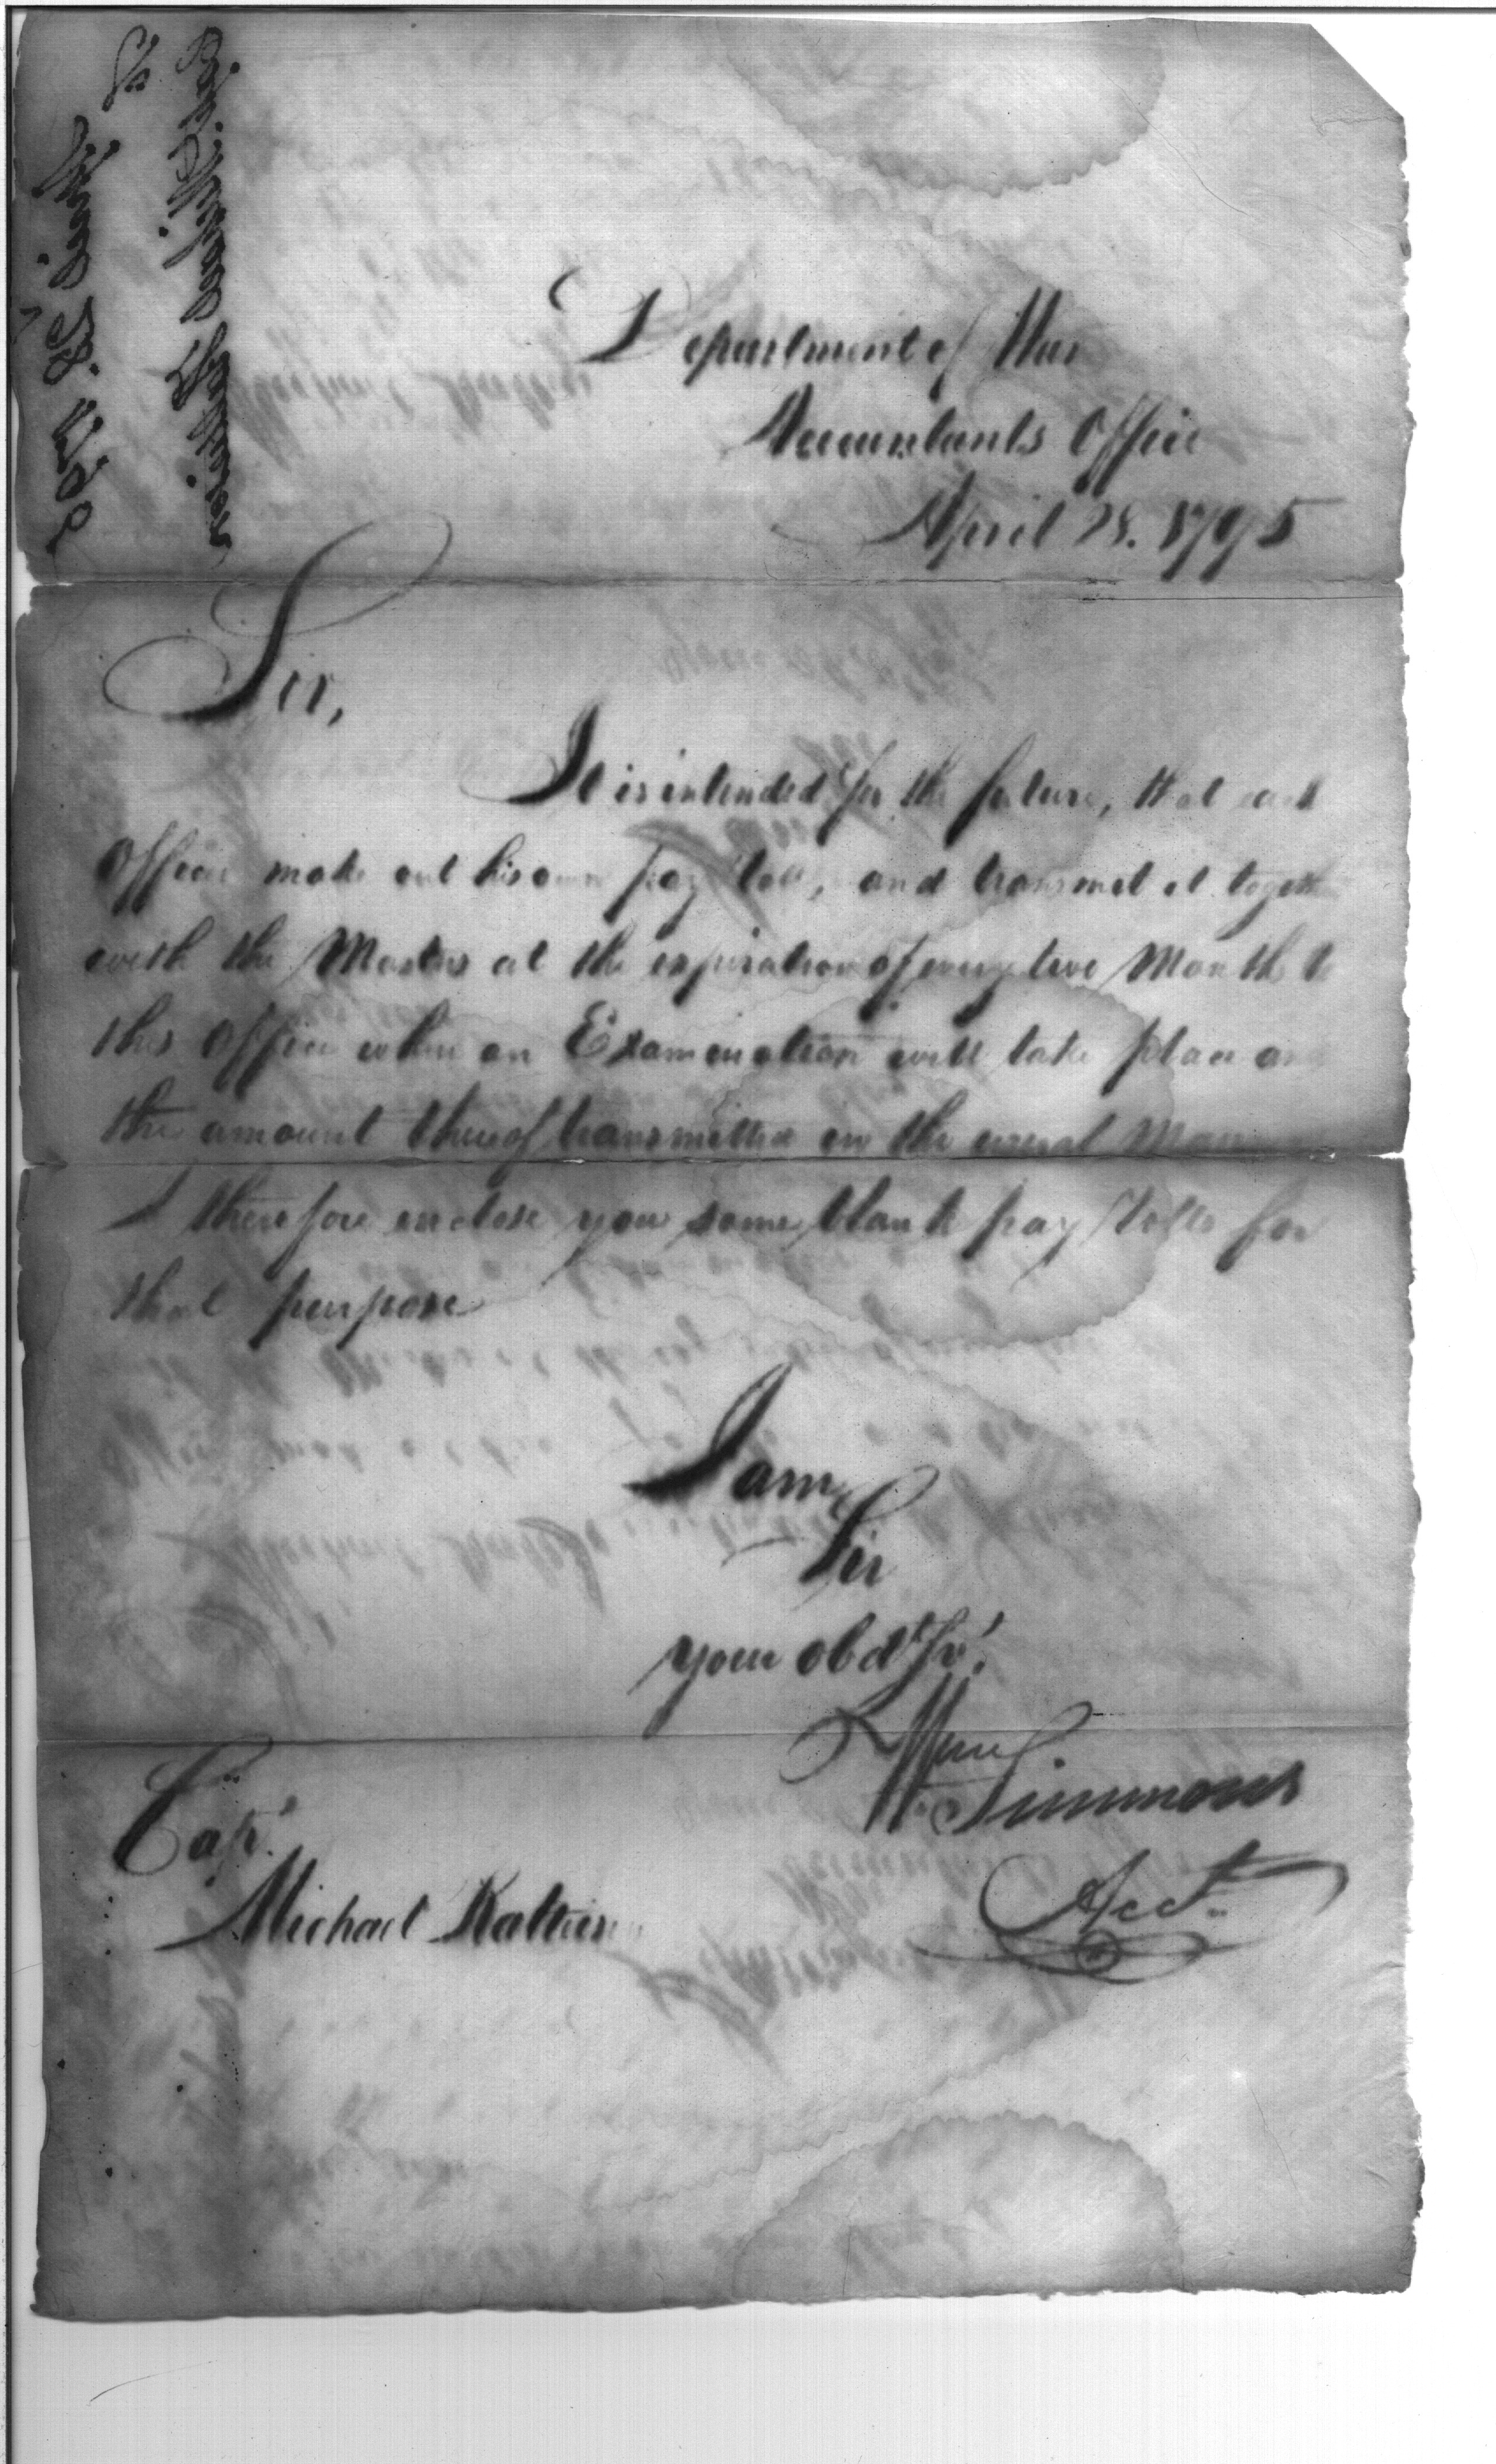 Department of War
Accountants Office
April 28. 1795
Sir,
It is intended for the future, that each
Officer make out his own pay Roll, and transmit it together
with the Musters at the expiration of every two Months to
this Office when an Examination will take place and
the amount thereof transmitted in the usual Manner
I therefore enclose you some blank pay Rolls for
that purpose
I am
Sir
your obdt. Sert.
Wm Simmons
Acct.
Capt.
Michael Kalteisen